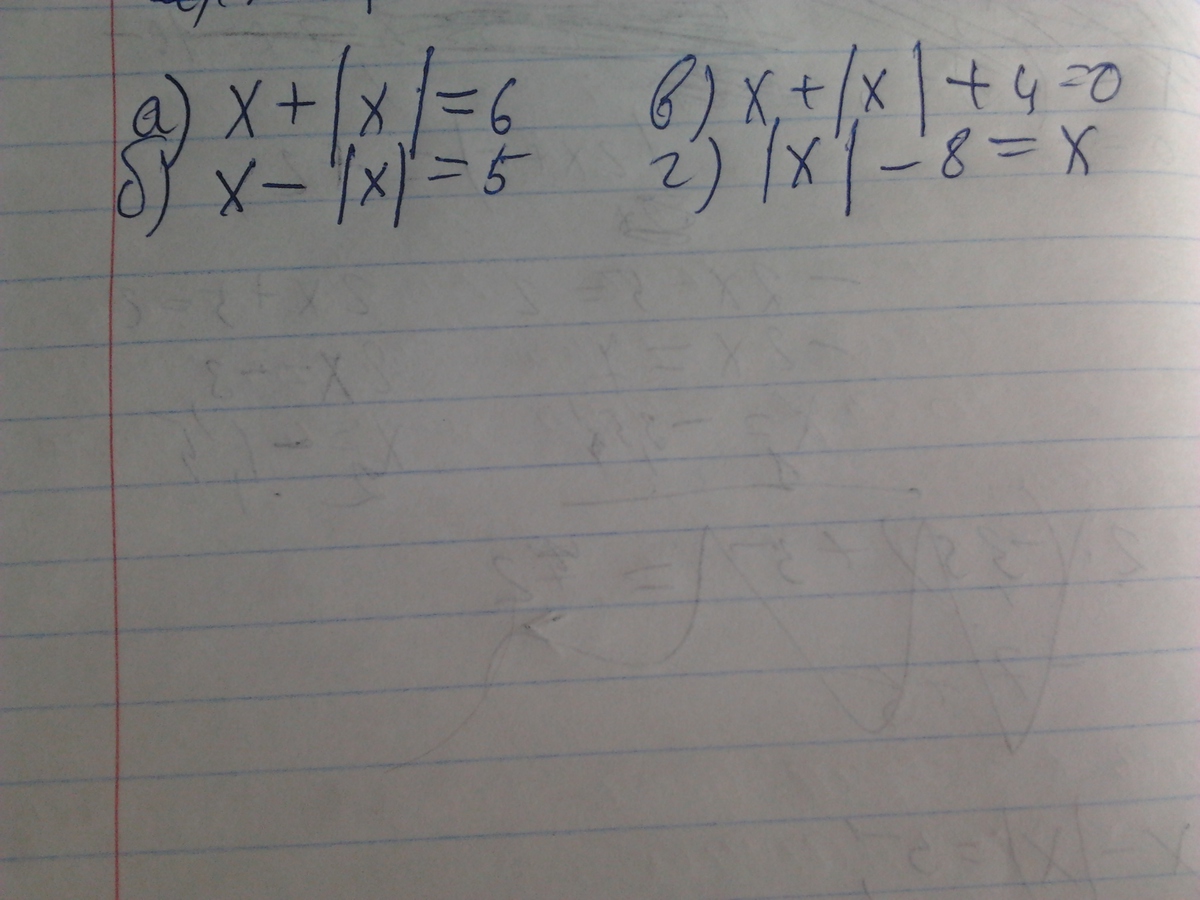 а) x + |x| = 6
б) x - |x| = 5
в) x + |x| + 4 = 0
г) |x| - 8 = x